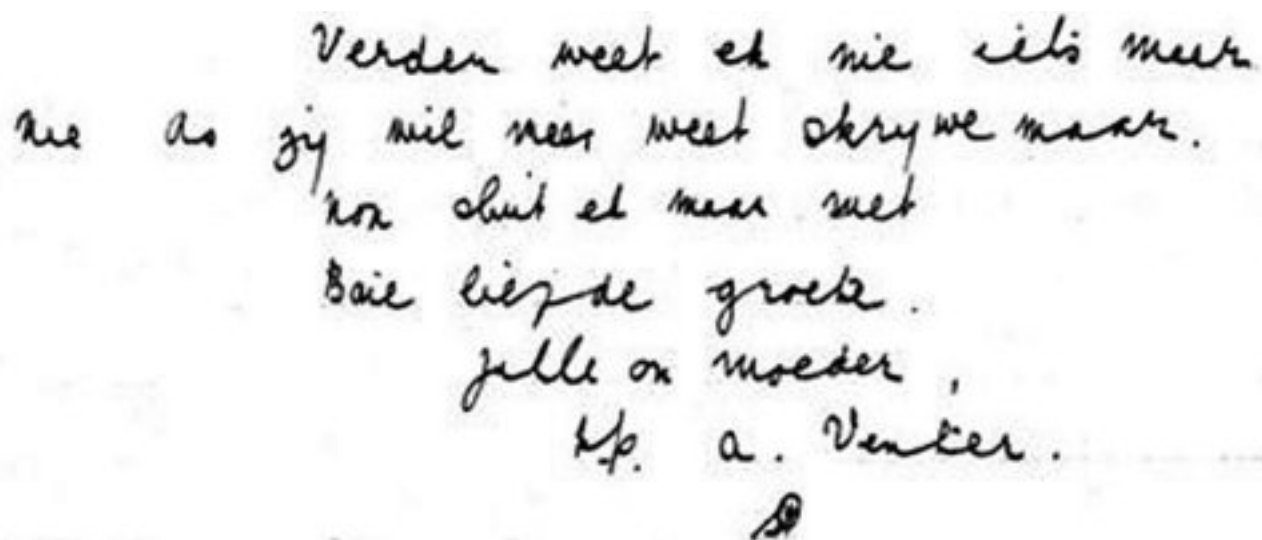 Verder weet ek nie iets meer
nie as jy wil meer weet skrywe maar.
non sluit ek maar met
Baie liefde groete.
julle ou moeder,
A. Venter.